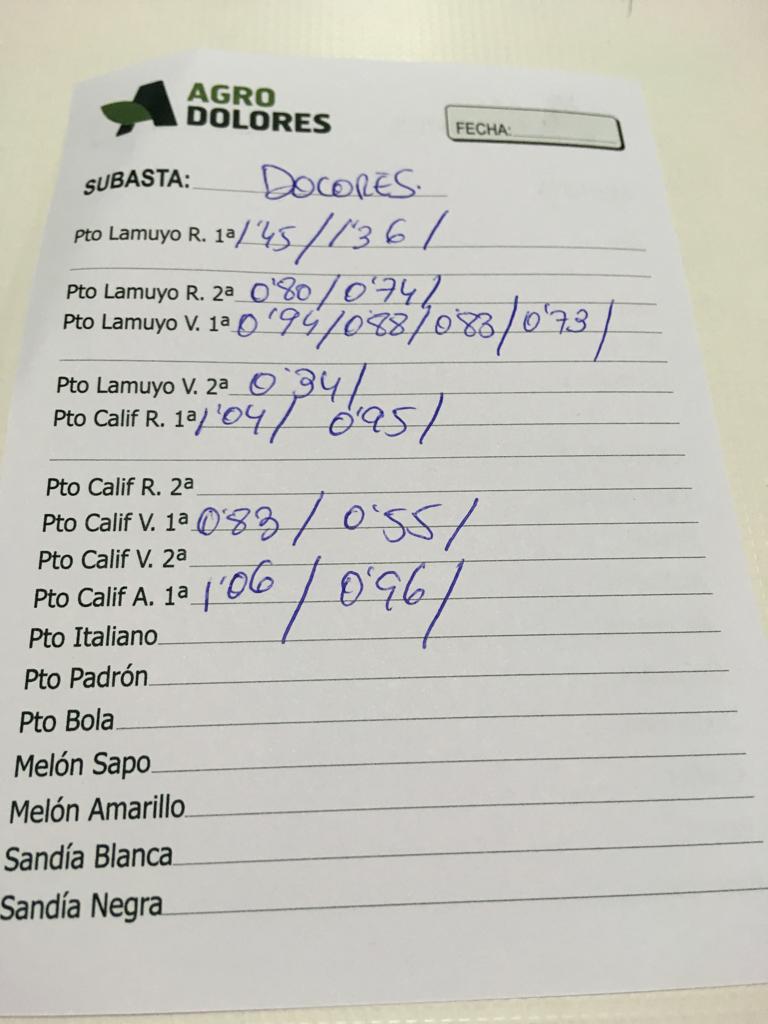 AGRO
DOLORES
FECHA:
SUBASTA: DOLORES.
Pto Lamuyo R. 1ª 1'45/1'36/
Pto Lamuyo R. 2ª 0'80/0'74/
Pto Lamuyo V. 1ª 0'94/0'88/0'83/0'73/
Pto Lamuyo V. 2ª 0'34/
Pto Calif R. 1ª 1'04/ 0'95/
Pto Calif R. 2ª
Pto Calif V. 1ª 0'83/ 0'55/
Pto Calif V. 2ª
Pto Calif A. 1ª 1'06/ 0'96/
Pto Italiano
Pto Padrón
Pto Bola
Melón Sapo
Melón Amarillo
Sandía Blanca
Sandía Negra